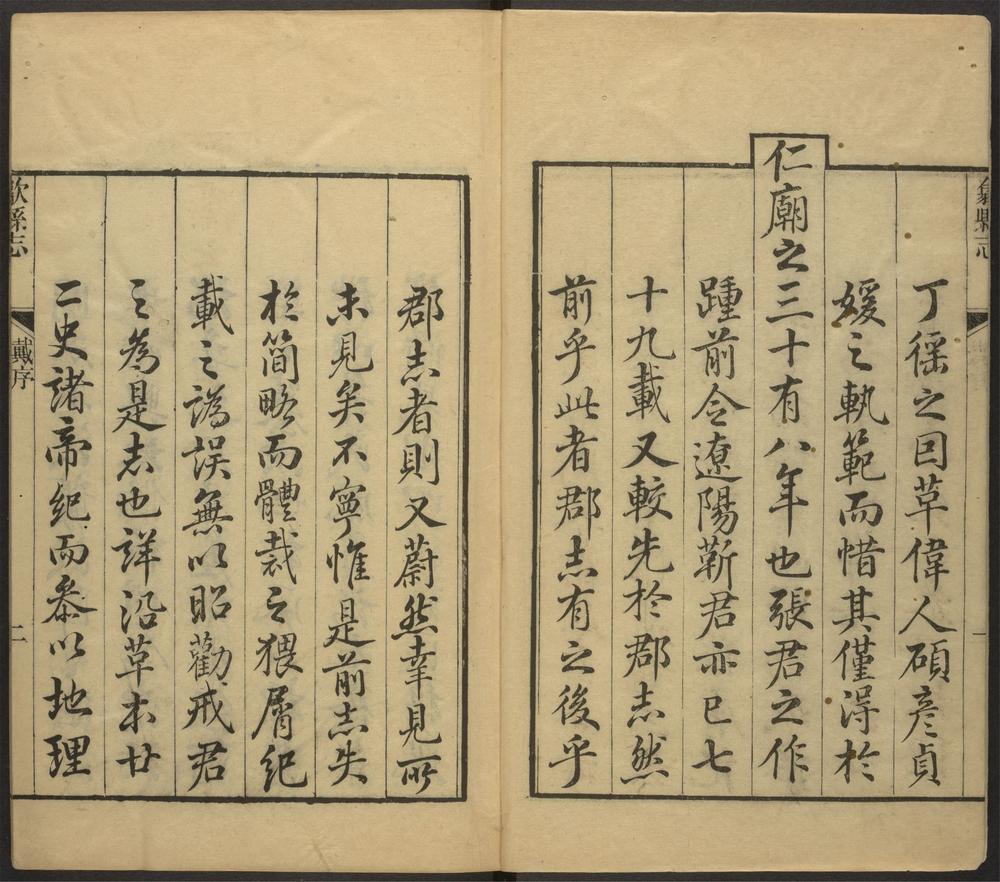 歙縣志
丁徭之因革偉人碩彥貞
媛之軌範而惜其僅淂於
仁廟之三十有八年也張君之作
踵前令遼陽靳君亦已七
十九載又較先於郡志然
前乎此者郡志有之後乎
郡志者則又蔚然幸見所
未見矣不寧惟是前志失
於簡略而體裁之猥屑紀
載之譌誤無以昭勸戒君
之為是志也詳沿革本廿
二史諸帝紀而叅以地理
歙縣志
戴序
二